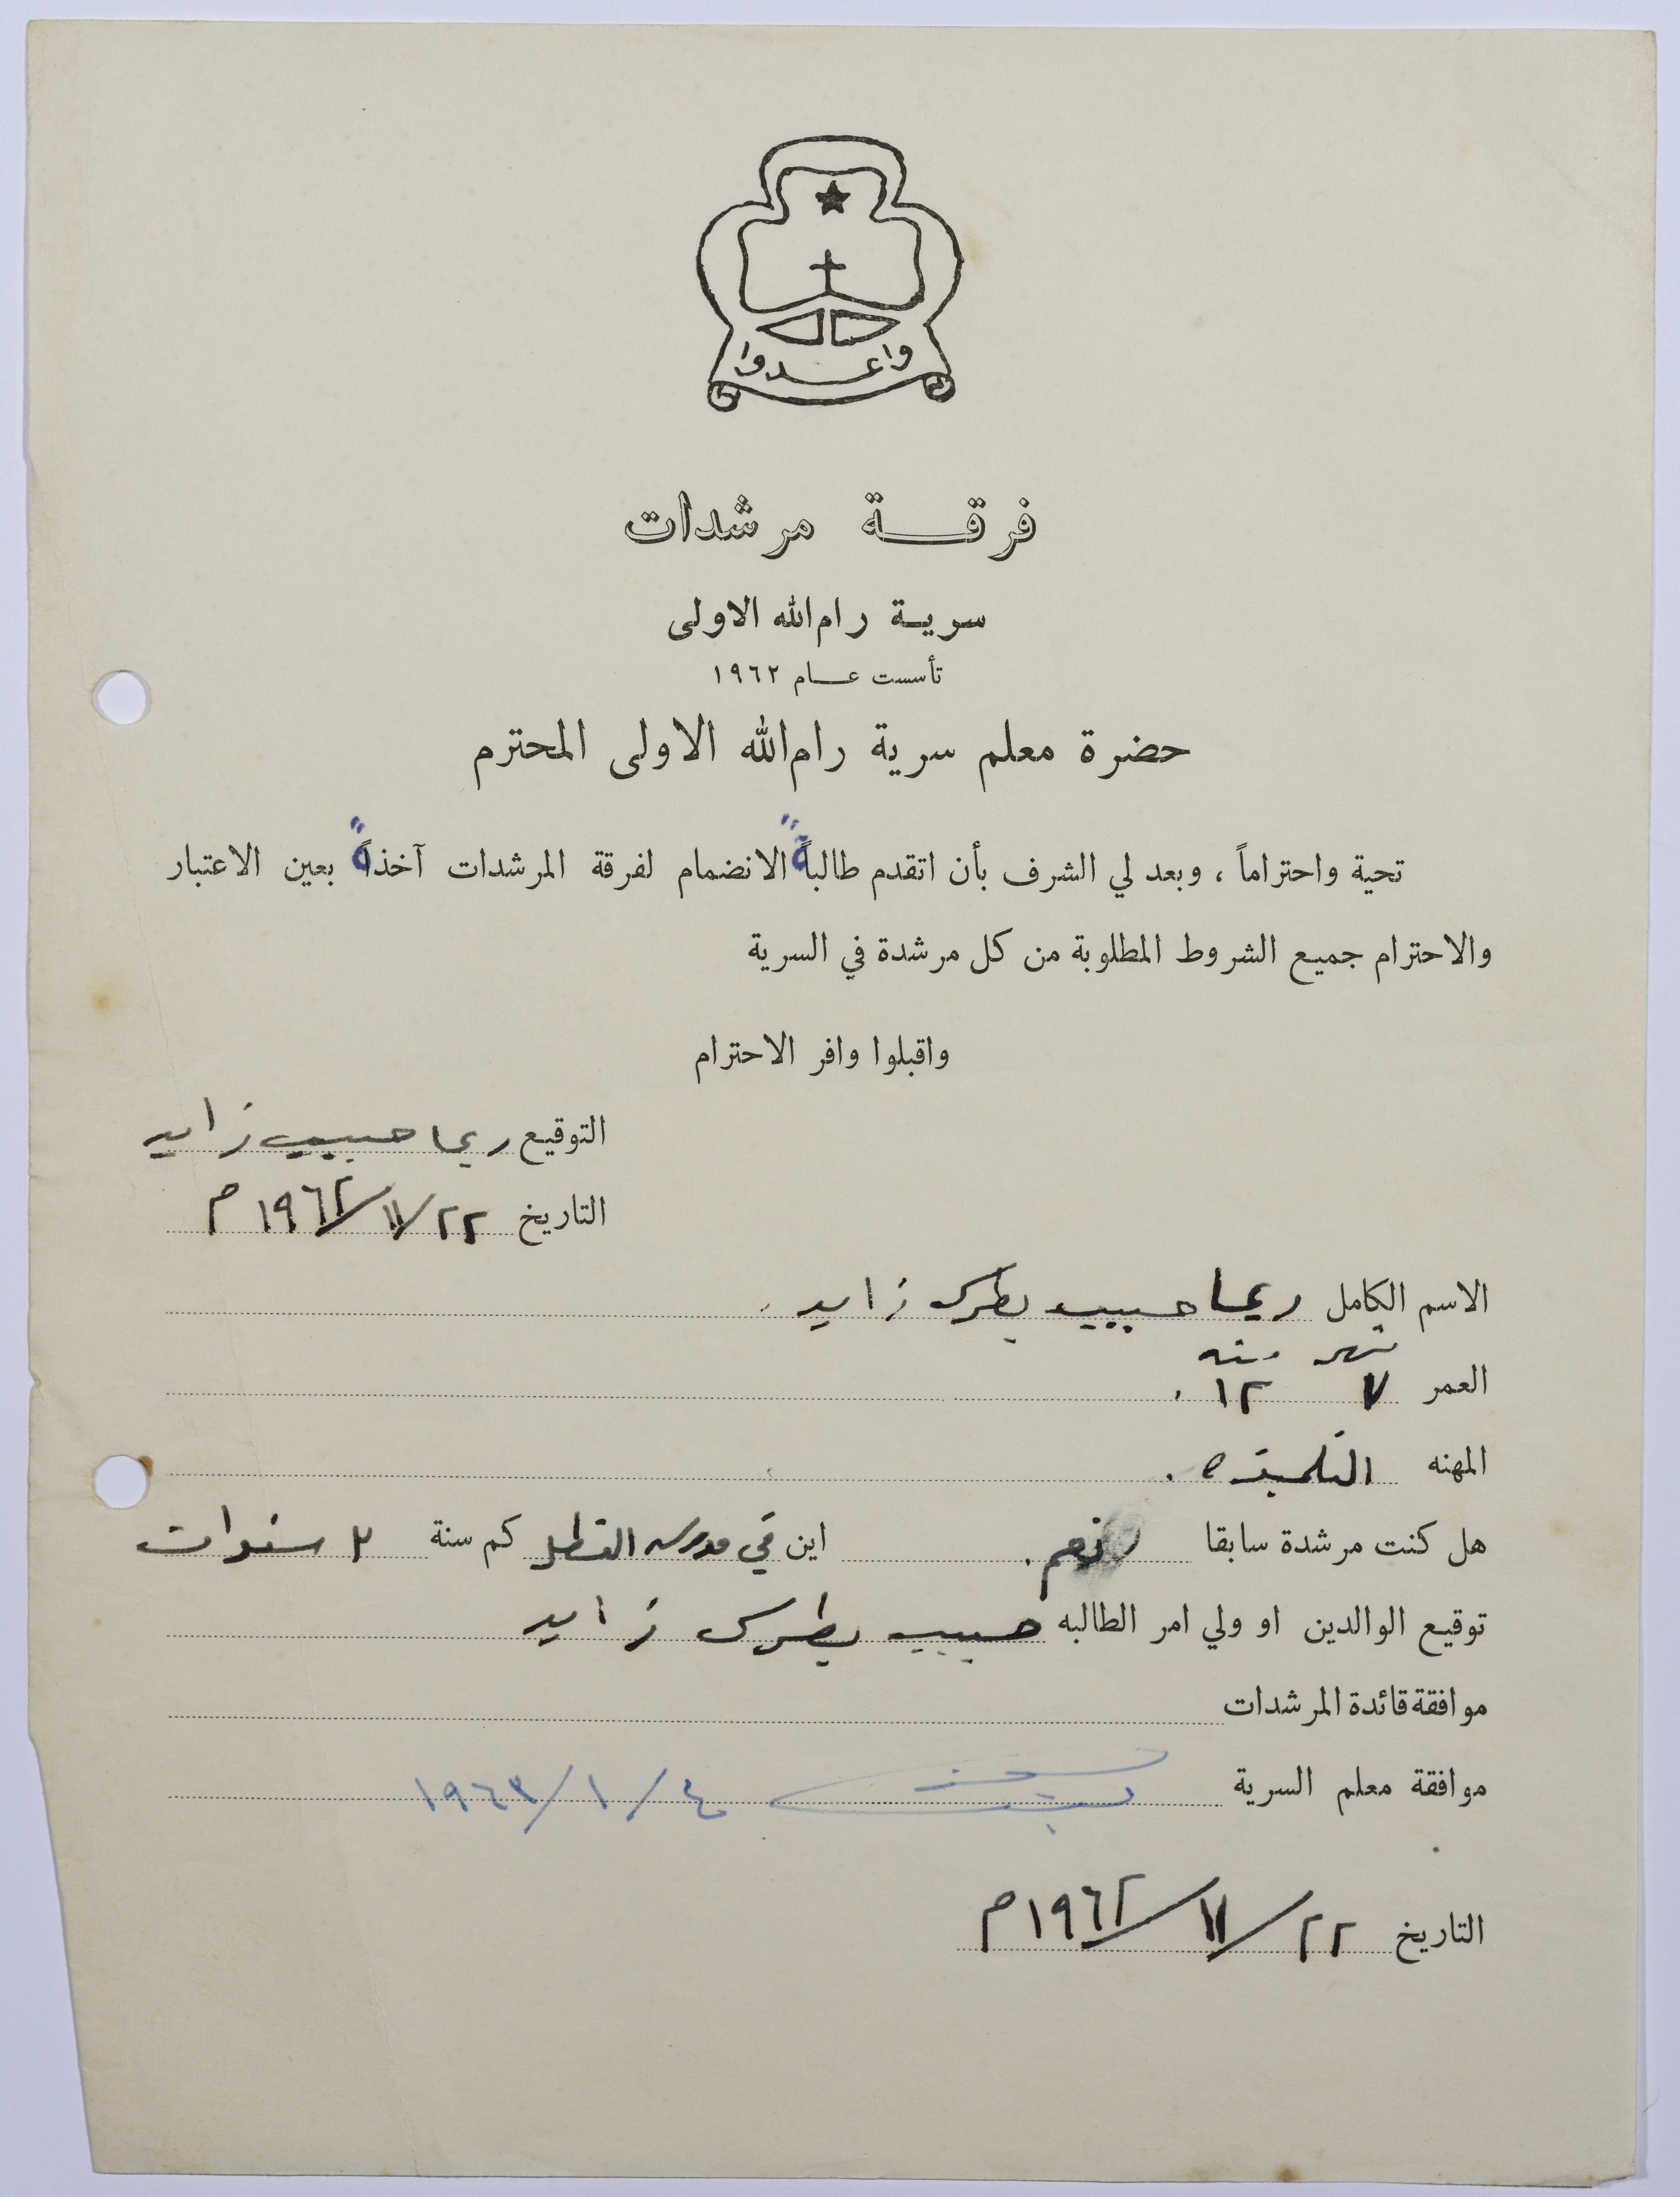 واعدوا
فرقة مرشدات
سرية رام الله الاولى
تأسست عام ١٩٦٢
حضرة معلم سرية رام الله الاولى المحترم
تحية واحتراماً ، وبعد لي الشرف بأن اتقدم طالبةً الانضمام لفرقة المرشدات آخذةً بعين الاعتبار
والاحترام جميع الشروط المطلوبة من كل مرشدة في السرية
واقبلوا وافر الاحترام
التوقيع ريما حبيب زايد
التاريخ ٢٢/١١/١٩٦٢ م
الاسم الكامل ريما حبيب بطرس زايد .
شهر سنه
العمر ٧ ١٢ .
المهنه التلميذه .
هل كنت مرشدة سابقا نعم . اين في مدرسه كم سنة ٢ سنوات
توقيع الوالدين او ولي امر الطالبه حبيب بطرس زايد
موافقة قائدة المرشدات
موافقة معلم السرية ٤/١/١٩٦٣
التاريخ ٢٢/١١/١٩٦٢ م